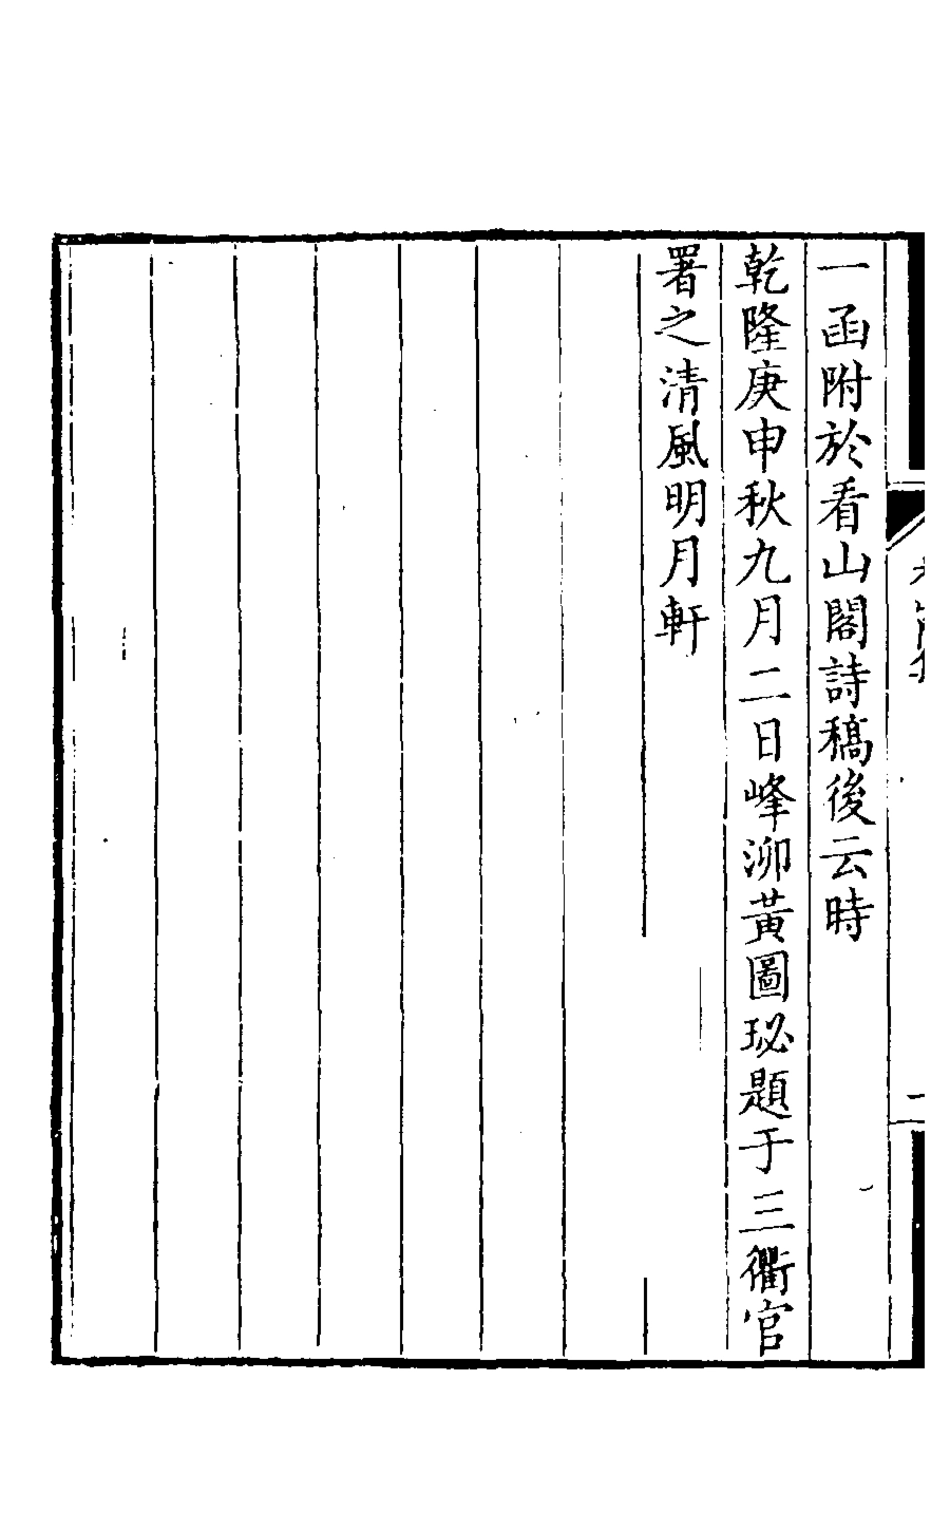 一函附於看山閣詩稿後云時
乾隆庚申秋九月二日峰泖黃圖珌題于三衢官
署之清風明月軒